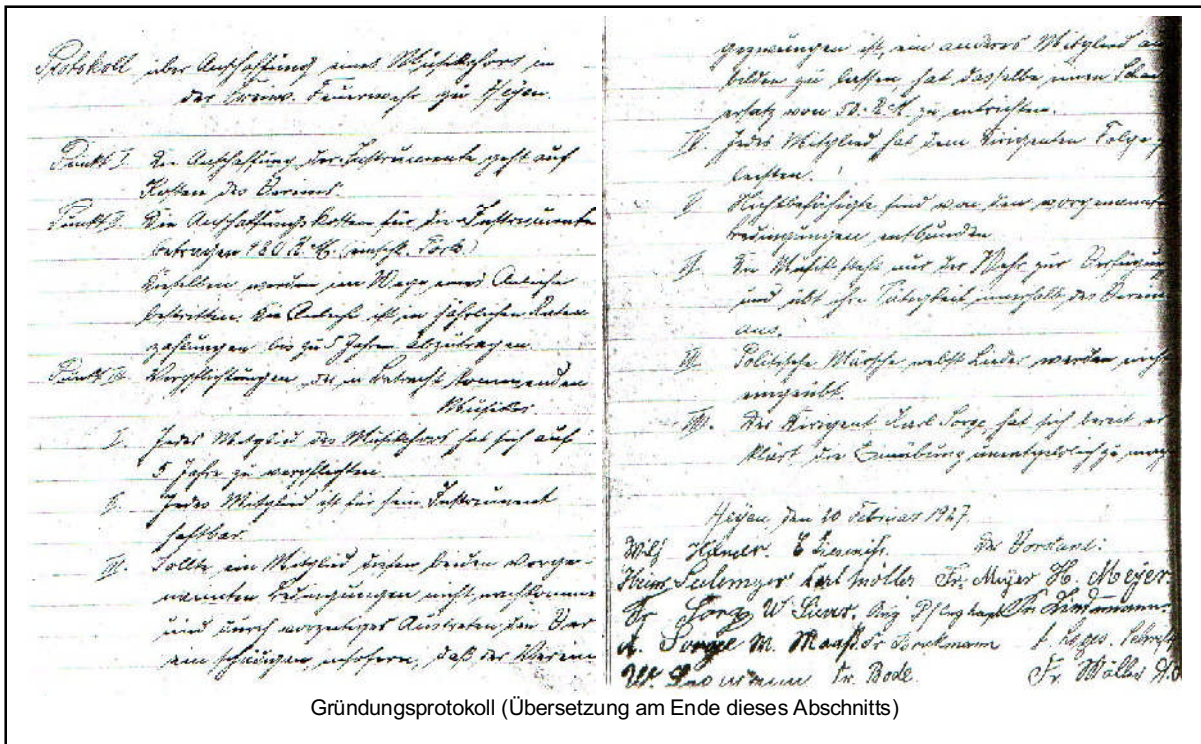 Protokoll über Anschaffung eines Musikchors in
der Freiw. Feuerwehr zu Heyen.
Punkt I. Die Anschaffung der Instrumente geht auf
Kosten des Vereins.
Punkt II. Die Anschaffungskosten für die Instrumente
betragen 180 R.M. (einschl.
Dieselben werden im Wege einer Anleihe
bestritten. Die Anleihe ist in jährlichen Raten
zahlungen bis zu 5 Jahren abzutragen.
Punkt III. Verpflichtungen der in Betracht kommenden
Musiker.
I. Jedes Mitglied des Musikchors hat sich auf
5 Jahre zu verpflichten.
II. Jedes Mitglied ist für sein Instrument
haftbar.
III. Sollte ein Mitglied diesen beiden vorge-
nannten Bedingungen nicht nachkommen
und durch vorzeitiges Austreten den Ver
ein schädigen, insofern, daß der Verein
gezwungen ist, ein anderes Mitglied
bilden zu lassen, hat dasselbe einen
ersatz von 50.- R.M. zu entrichten.
IV. Jedes Mitglied hat dem Dirigenten Folge z
leisten.
V. Nichtbefähigte sind von den vorgenannten
Bedingungen entbunden.
VI. Die Musik steht nur der Wehr zur Verfügung
und übt ihre Tätigkeit innerhalb des Vereins
aus.
VII. Politische Märsche nebst Lieder werden nicht
eingeübt.
VIII. Der Dirigent Karl Sorge hat sich bereit er
klärt die Einübung unentgeltlich zu
Heyen den 20 Februar 1927.
Der Vorstand:
Karl Möller Fr. Meyer H. Meyer
W. Sievers
A. Sorge M. Maaß Fr.
Fr. Bode Fr. Möller
Gründungsprotokoll (Übersetzung am Ende dieses Abschnitts)